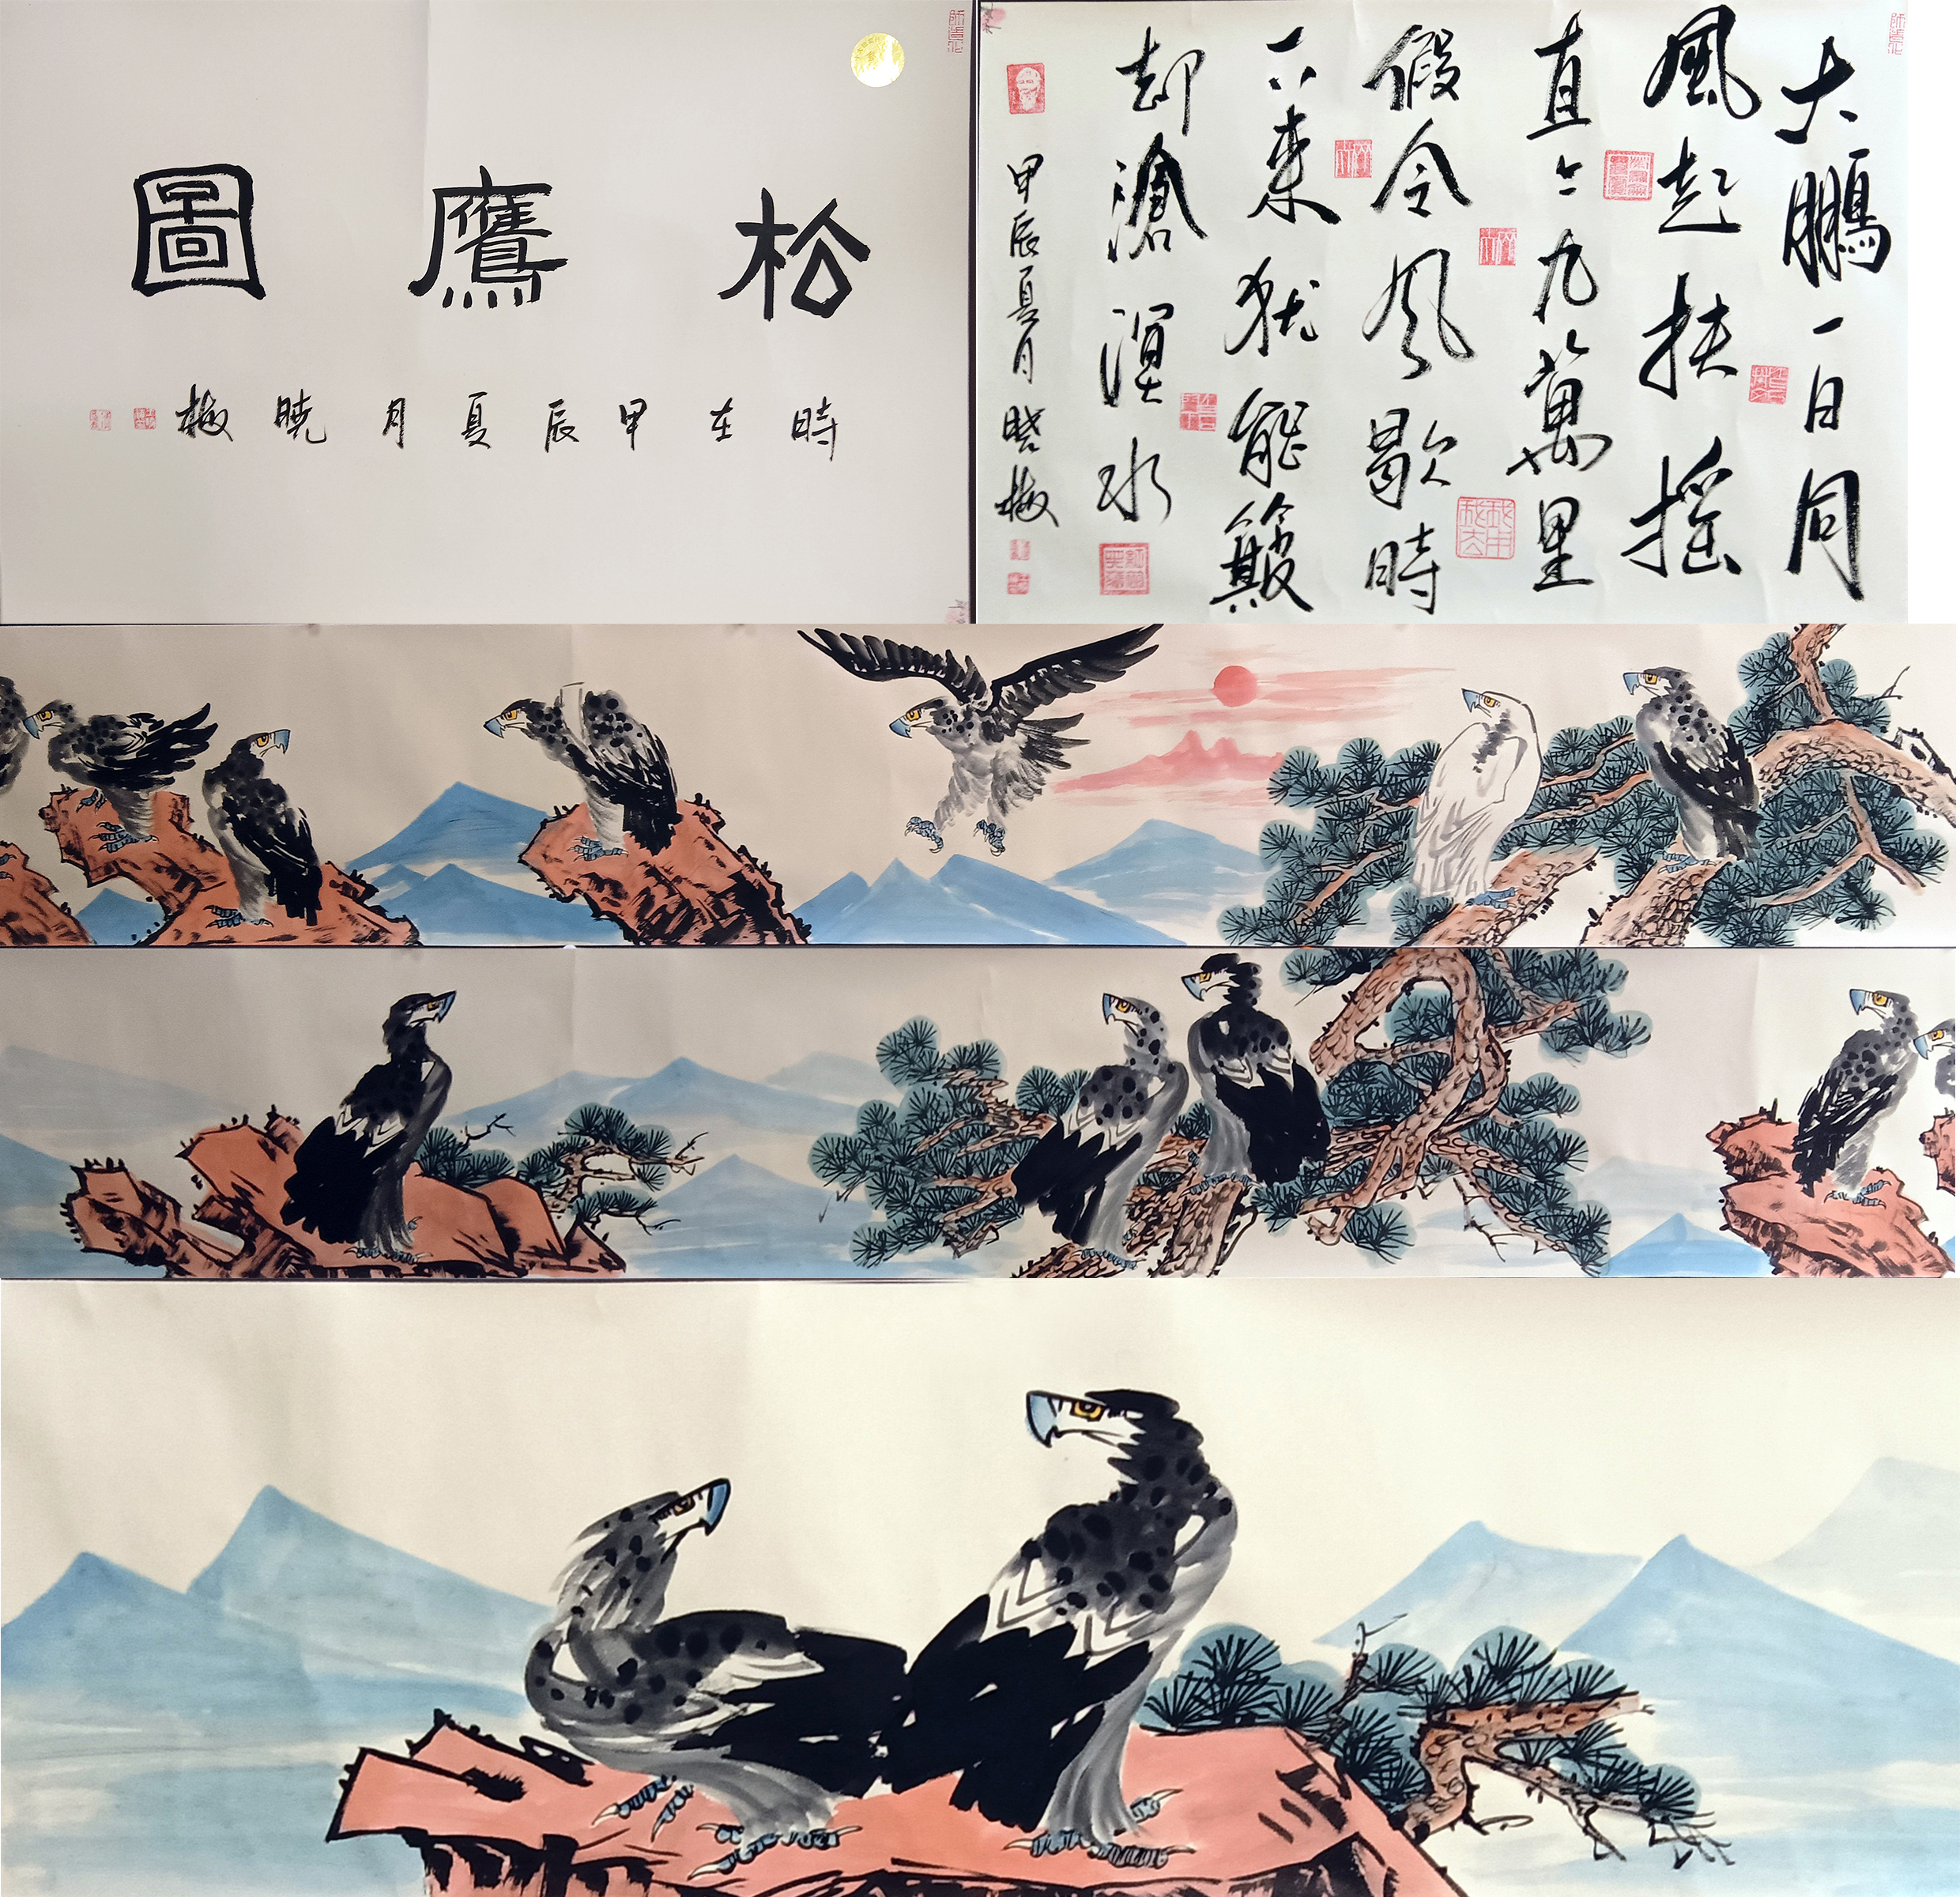 松鷹圖
時在甲辰夏月晓梅
大鵬一日同
風起扶摇
直上九萬里
假令风歇時
下来犹能簸
却滄溟水
甲辰夏月晓梅